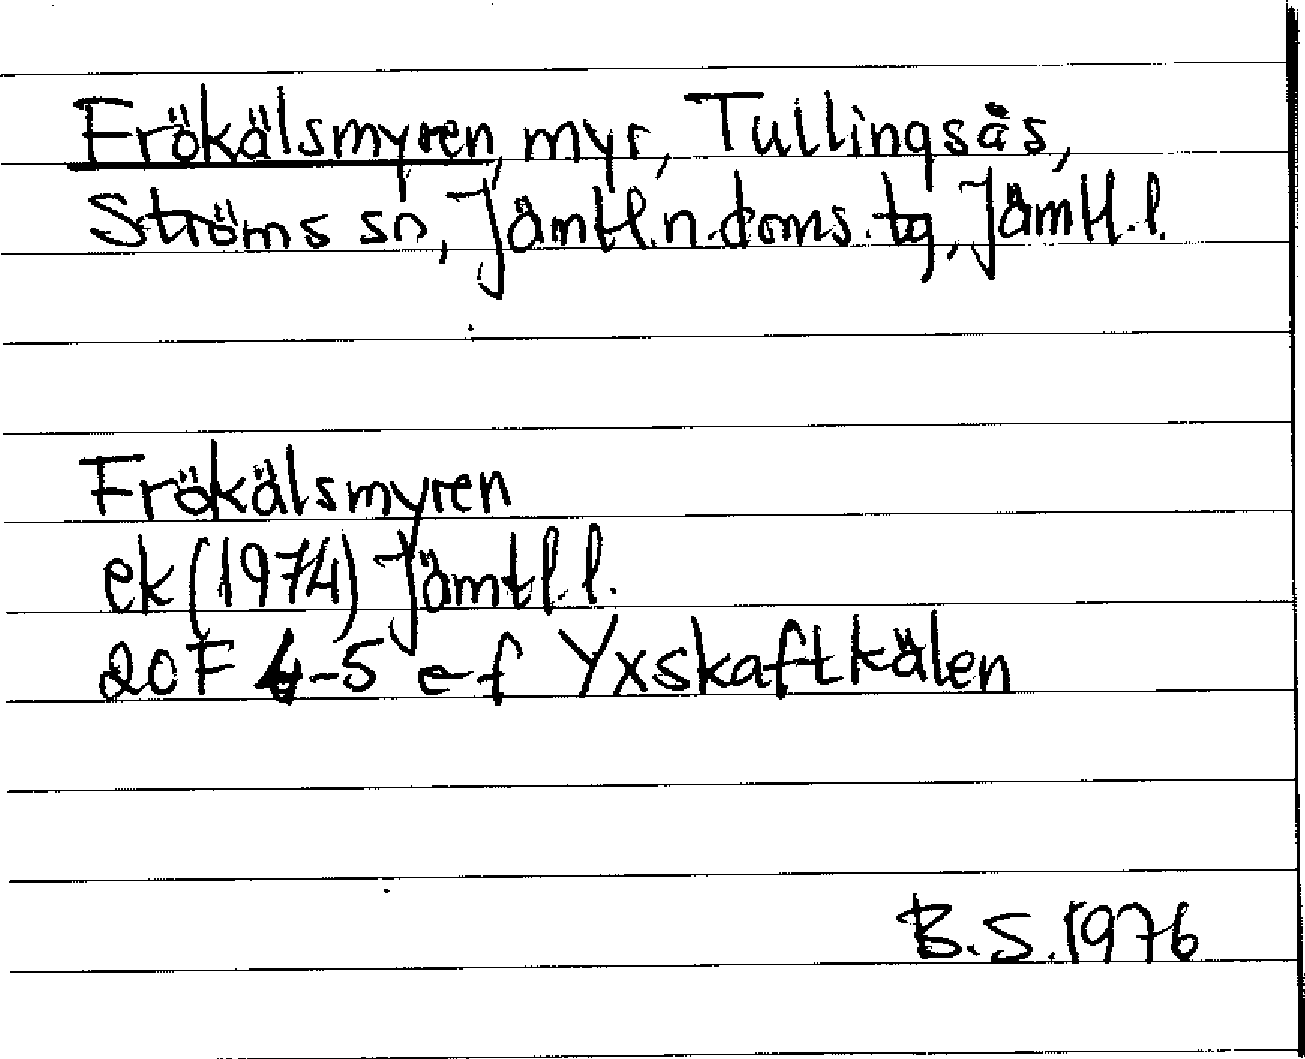 Frökälsmyren, myr, Tullingsås,
Ströms sn, Jämtl.n.doms.tg, Jämtl.l.
Frökälsmyren
ek (1974) Jämtl.l.
20F 4-5 e-f Yxskaftkälen
B.S. 1976